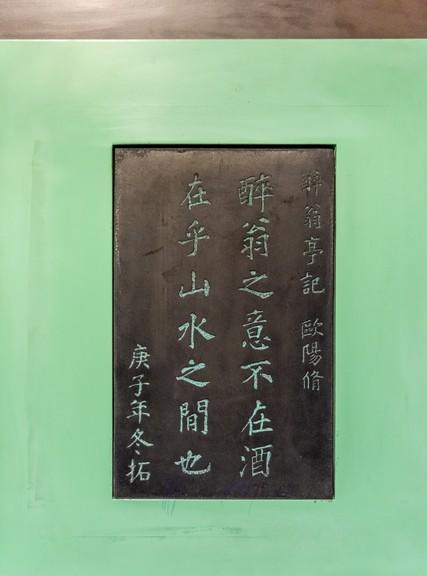 醉翁亭記 歐陽脩
醉翁之意不在酒
在乎山水之間也
庚子年冬拓